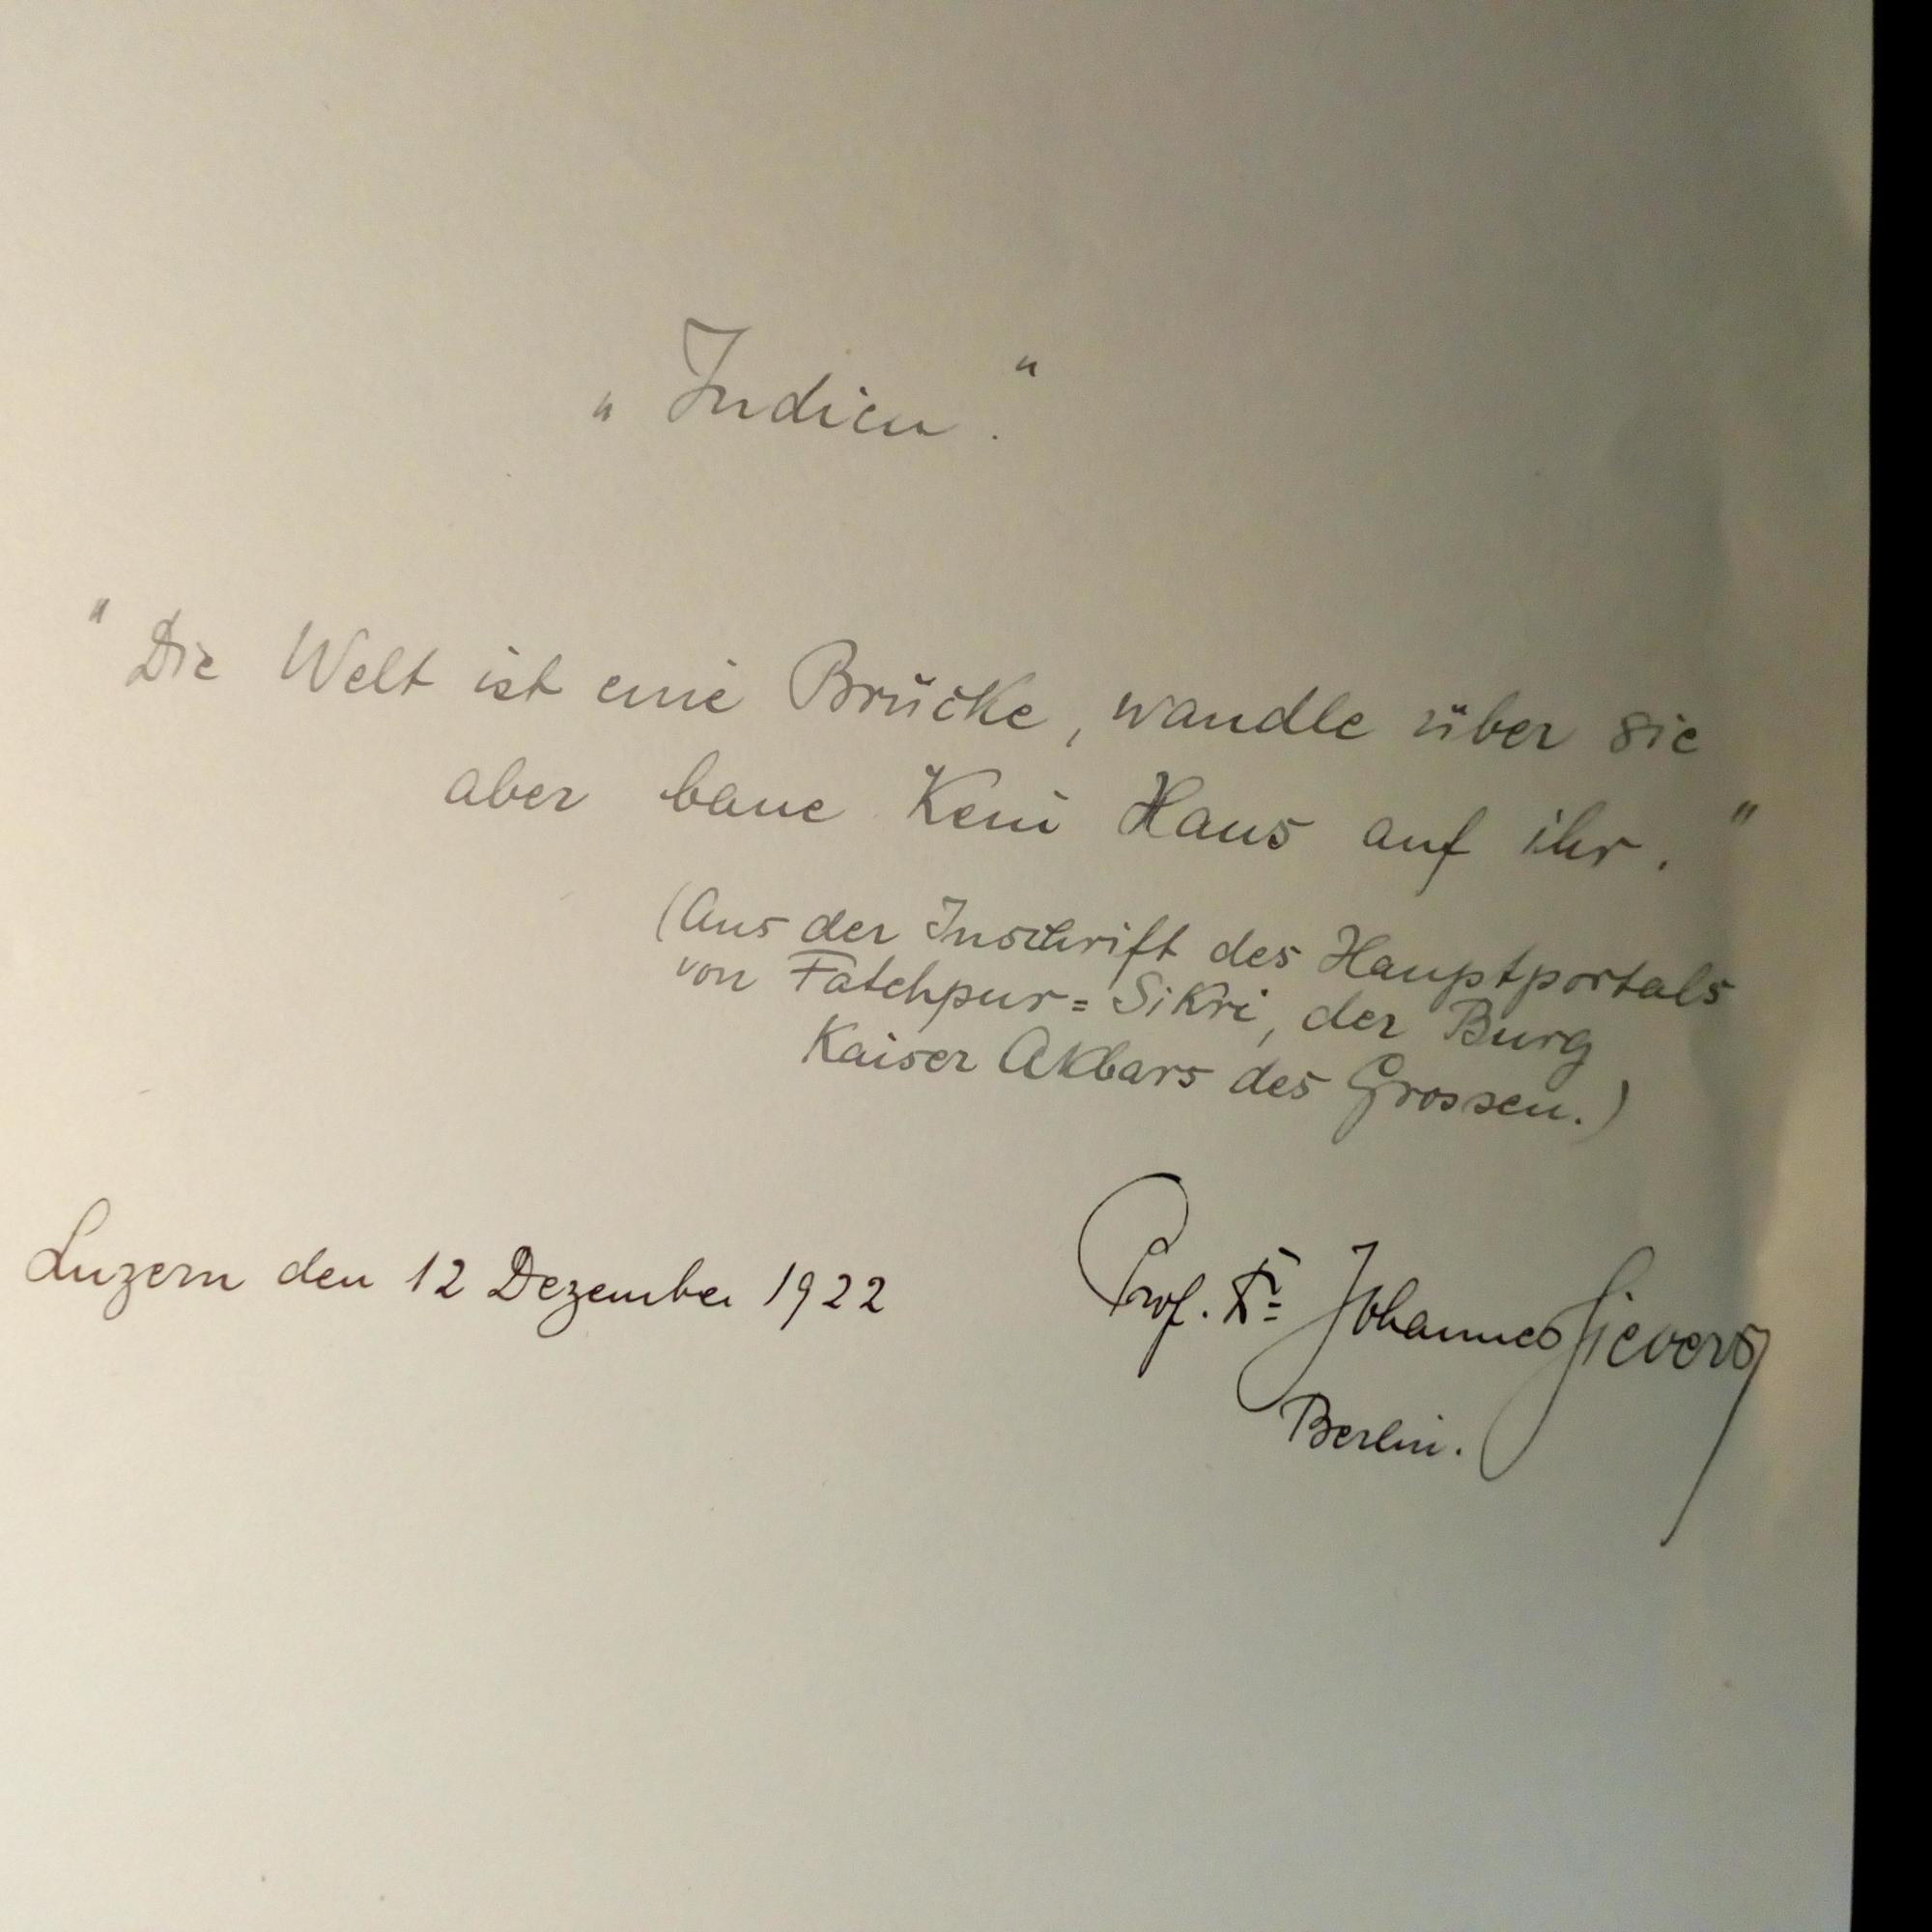 „Indien."
"Die Welt ist eine Brücke, wandle über sie
aber baue Kein Haus auf ihr."
(Aus der Inschrift des Hauptportals
von Fatehpur=Sikri, der Burg
Kaiser Akbars des Grossen.)
Luzern den 12 Dezember 1922
Prof. Dr= Johannes Sievers
Berlin.